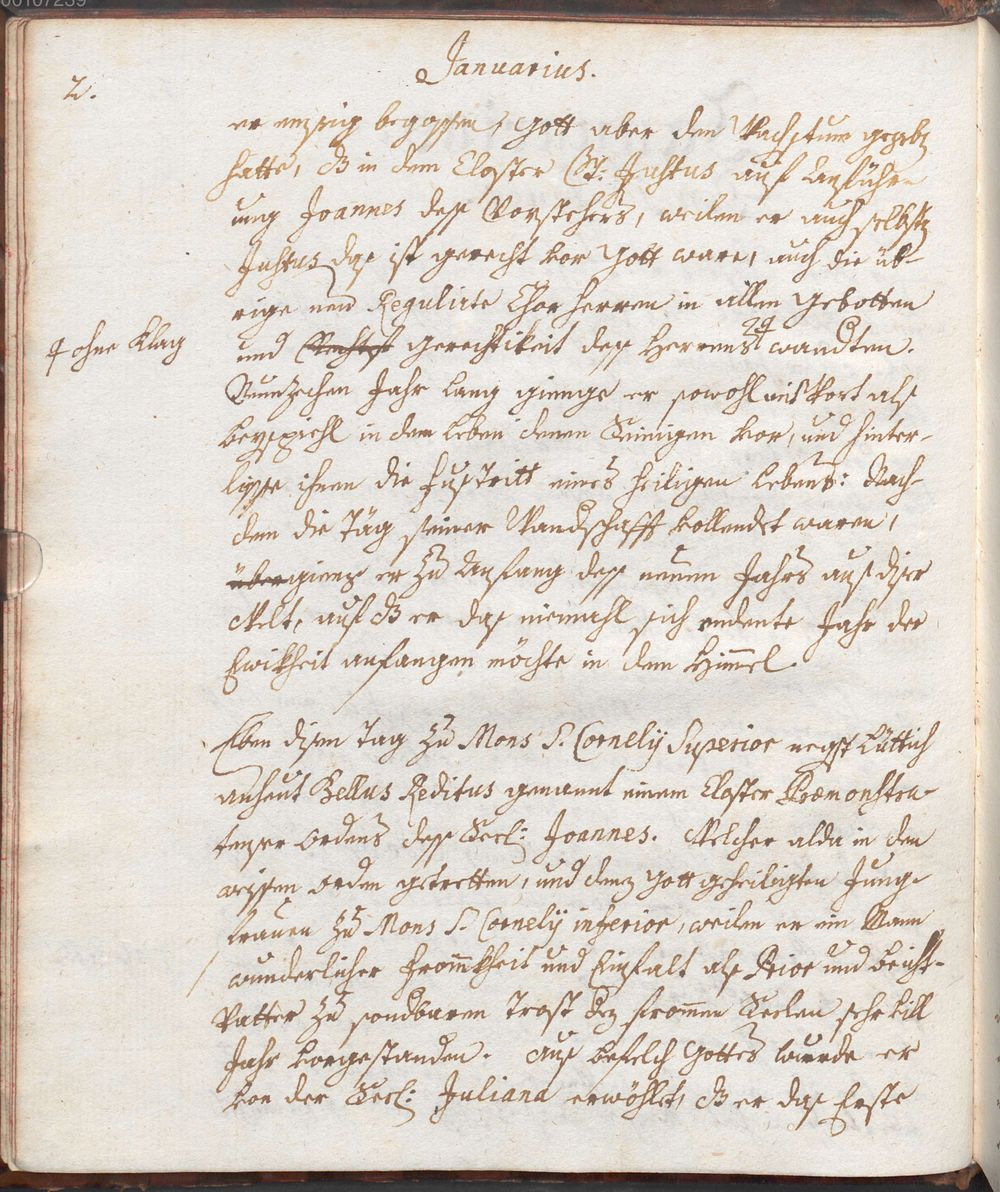 00107239
Januarius.
2.
er emsig begossen, Gott aber den Wachstum gegeben
hatte, dz in dem Closter St: Justus auf Anführ-
ung Joannes dess Vorstehers, weilen er auch selbst
Justus das ist gerecht vor Gott ware, auch die üb-
rige neu Regulirte Chorherren in allen Gebotten
und gerechtikeit dess Herrens wandten.
ohne Klag
Neunzehen Jahr lang gienge er sowohl mit Wort als
beyspihl in dem leben denen Seinigen vor, und hinter-
liesse ihnen die fustritt eines heiligen lebens: Nach-
dem die täg seiner Wandschafft vollendet waren,
übergieng er zu Anfang dess neuen Jahrs aus diser
Welt, auf dz er das niemahl sich endente Jahr der
Ewikheit anfangen möchte in dem Himmel.
Eben disen tag zu Mons S. Cornelÿ Superior negst Lüttich
anheut Bellus Reditus genannt einem Closter Præmonstra-
tenser ordens dess Seel: Joannes. Welcher alda in den
weissen orden getretten, und denen Gott geheiligten Jung-
frauen zu Mons S. Cornelÿ inferior, weilen er ein Mann
wunderlicher frommkheit und Einfalt als Prior und beicht-
Vatter zu sondbaren trost der frommen Seelen sehr vill
Jahr vorgestanden. Aus befelch Gottes wurde er
von der Seel: Juliana erwöhlet, dz er das Erste